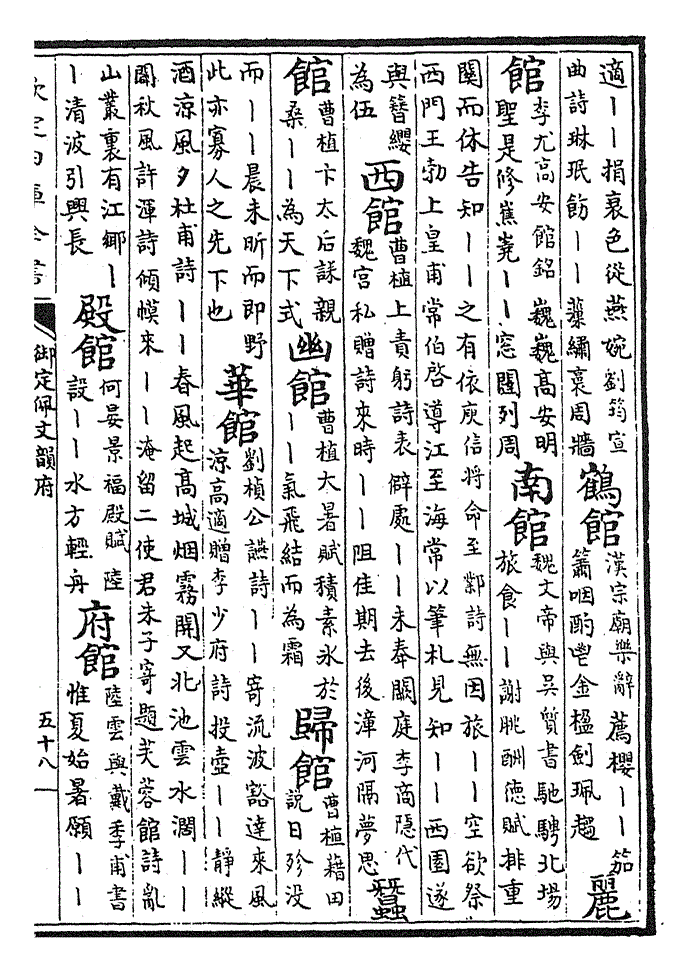 適丨丨捐衰色從燕婉劉筠宣
曲詩琳珉飭丨丨藻繡裛周牆
鶴館
漢宗廟樂辭薦櫻丨丨笳
簫咽酌鬯金楹劍珮趨
麗
館
李尤高安館銘巍巍高安明
聖是修嶣嶤丨丨窓闥列周
南館
魏文帝與吳質書馳騁北場
旅食丨丨謝朓酬德賦排重
關而休告知丨丨之有依庾信將命至鄴詩無因旅丨丨空欲祭
西門王勃上皇甫常伯啓導江至海常以筆札見知丨丨西園遂
與簪纓
為伍
西館
曹植上責躬詩表僻處丨丨未奉闕庭李商隱代
魏宮私贈詩來時丨丨阻佳期去後漳河隔夢思
蠶
館
曹植卞太后誄親
桑丨丨為天下式
幽館
曹植大暑賦積素氷於
丨丨氣飛結而為霜
歸館
曹植藉田
説日殄没
而丨丨晨未昕而即野
此亦寡人之先下也
華館
劉楨公讌詩丨丨寄流波豁達來風
涼高適贈李少府詩投壺丨丨静縱
酒涼風夕杜甫詩丨丨春風起高城烟霧開又北池雲水濶丨丨
闢秋風許渾詩傾幙來丨丨淹留二使君朱子寄題芙蓉館詩亂
山叢裏有江鄉丨
丨清波引興長
殿館
何晏景福殿賦陸
設丨丨水方輕舟
府館
陸雲與戴季甫書
惟夏始暑願丨丨
欽定四庫全書
御定佩文韻府
五十八